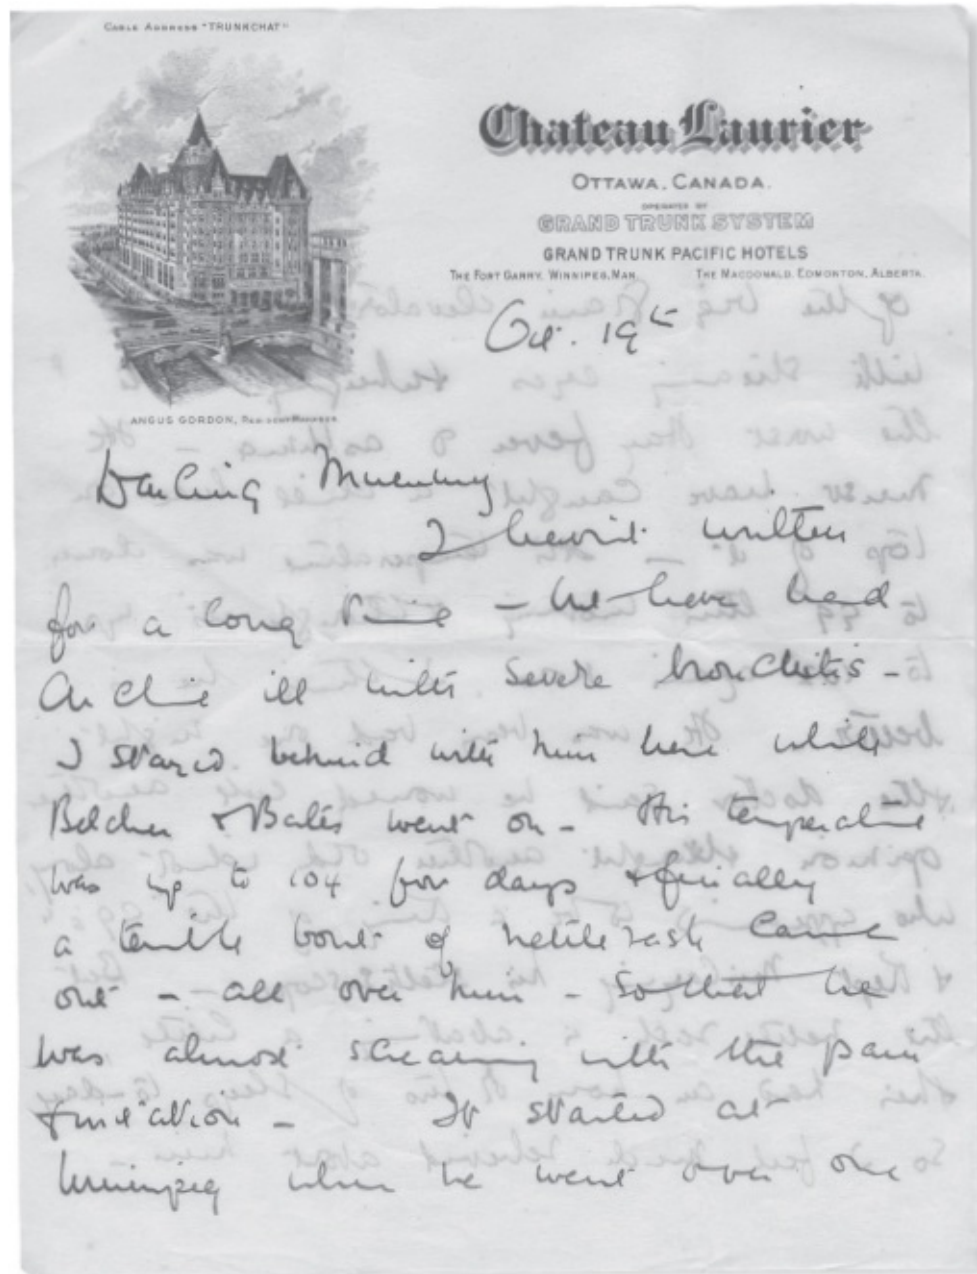 CABLE ADDRESS "TRUNKCHAT"
Chateau Laurier
OTTAWA, CANADA.
OPERATED BY
GRAND TRUNK SYSTEM
GRAND TRUNK PACIFIC HOTELS
THE FORT GARRY, WINNIPEG, MAN. THE MACDONALD, EDMONTON, ALBERTA.
ANGUS GORDON, RESIDENT MANAGER
Oct. 19th
Darling Mummy
I haven't written
for a long time - We have had
Archie ill with severe bronchitis -
I stayed behind with him here while
Belcher & Bates went on - His temperature
was up to 104 for days & finally
a terrible bout of nettlerash came
out - all over him - so that he
was almost screaming with the pain
& irritation - It started at
Winnipeg when he went over one